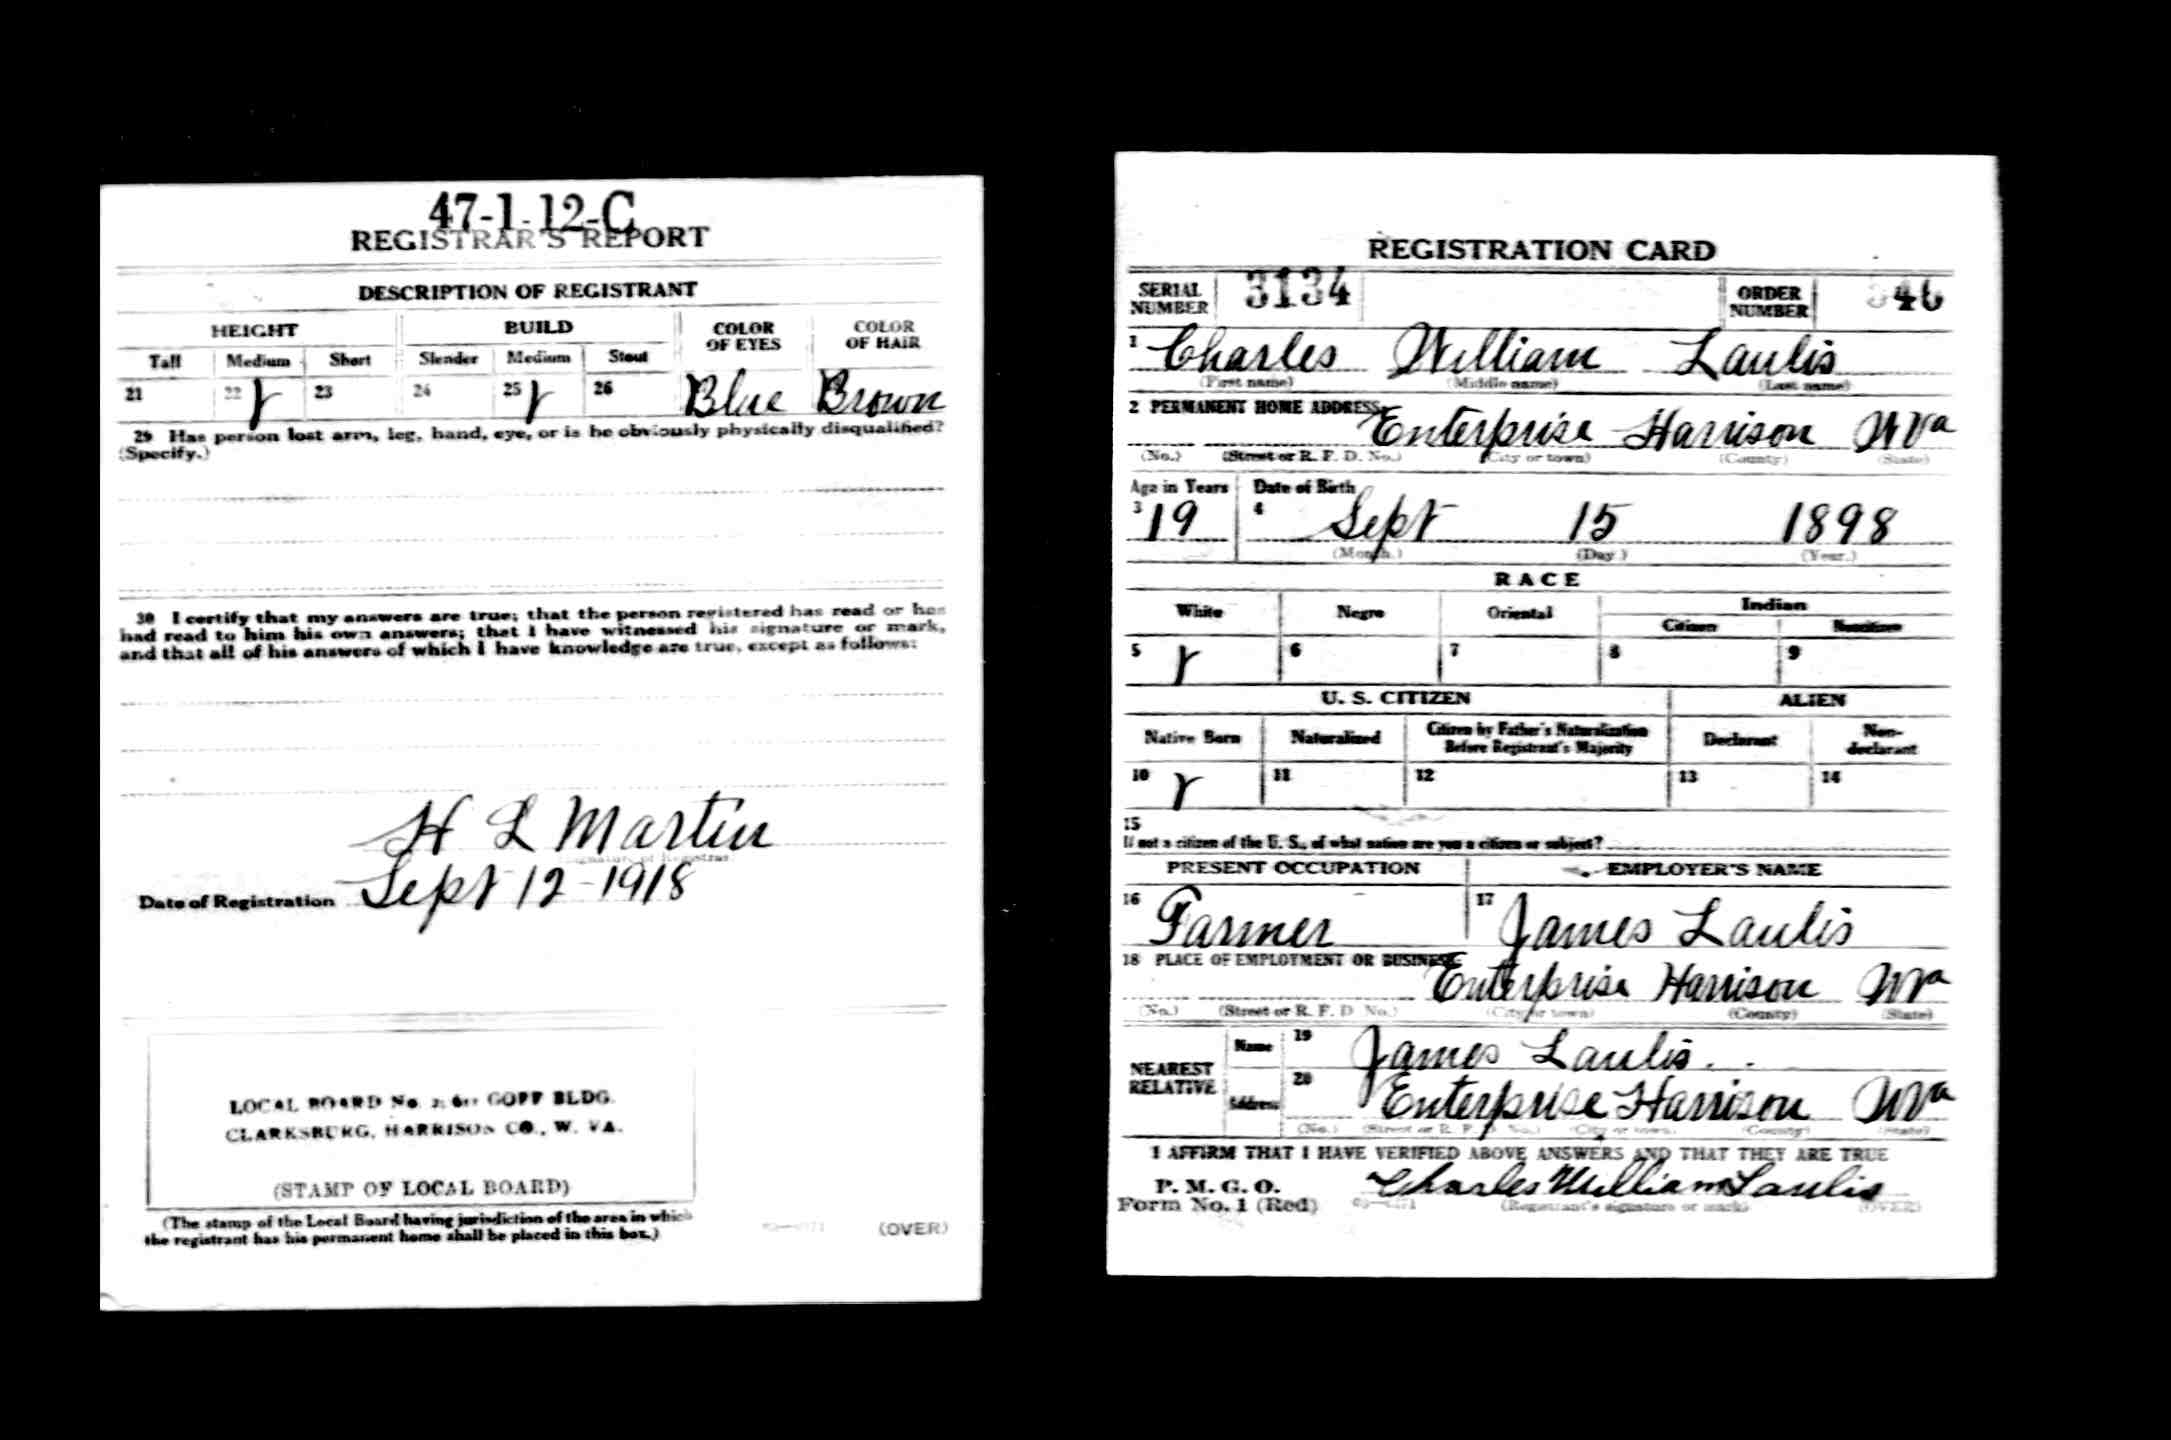 47-1-12-C
REGISTRAR'S REPORT
DESCRIPTION OF REGISTRANT
HEIGHT BUILD COLOR OF EYES COLOR OF HAIR
Tall Medium Short Slender Medium Stout
21 22 23 24 25 26 Blue Brown
29 Has person lost arm, leg, hand, eye, or is he obviously physically disqualified?
(Specify.)
30 I certify that my answers are true; that the person registered has read or has
had read to him his own answers; that I have witnessed his signature or mark,
and that all of his answers of which I have knowledge are true, except as follows:
H L Martin
(Signature of Registrar)
Date of Registration Sept 12-1918
LOCAL BOARD No. GOFF BLDG.
CLARKSBURG, HARRISON CO., W. VA.
(STAMP OF LOCAL BOARD)
(The stamp of the Local Board having jurisdiction of the area in which
the registrant has his permanent home shall be placed in this box.)
(OVER)
REGISTRATION CARD
SERIAL NUMBER 3134 ORDER NUMBER
1 Charles William Laulis
(First name) (Middle name) (Last name)
2 PERMANENT HOME ADDRESS
Enterprise Harrison WVa
(No.) (Street or R. F. D. No.) (City or town) (County) (State)
Age in Years Date of Birth
3 19 4 Sept 15 1898
(Month.) (Day.) (Year.)
RACE
White Negro Oriental Indian
Citizen Noncitizen
5 6 7 8 9
U. S. CITIZEN ALIEN
Native Born Naturalized Citizen by Father's Naturalization Before Registrant's Majority Declarant Non-declarant
10 11 12 13 14
15
If not a citizen of the U. S., of what nation are you a citizen or subject?
PRESENT OCCUPATION EMPLOYER'S NAME
16 Farmer 17 James Laulis
18 PLACE OF EMPLOYMENT OR BUSINESS
Enterprise Harrison WVa
(No.) (Street or R. F. D. No.) (City or town) (County) (State)
NEAREST RELATIVE
Name 19 James Laulis
Address 20 Enterprise Harrison WVa
(No.) (Street or R. F. D. No.) (City or town) (County) (State)
I AFFIRM THAT I HAVE VERIFIED ABOVE ANSWERS AND THAT THEY ARE TRUE
P. M. G. O.
Form No. 1 (Red) Charles William Laulis
(Registrant's signature or mark) (OVER)